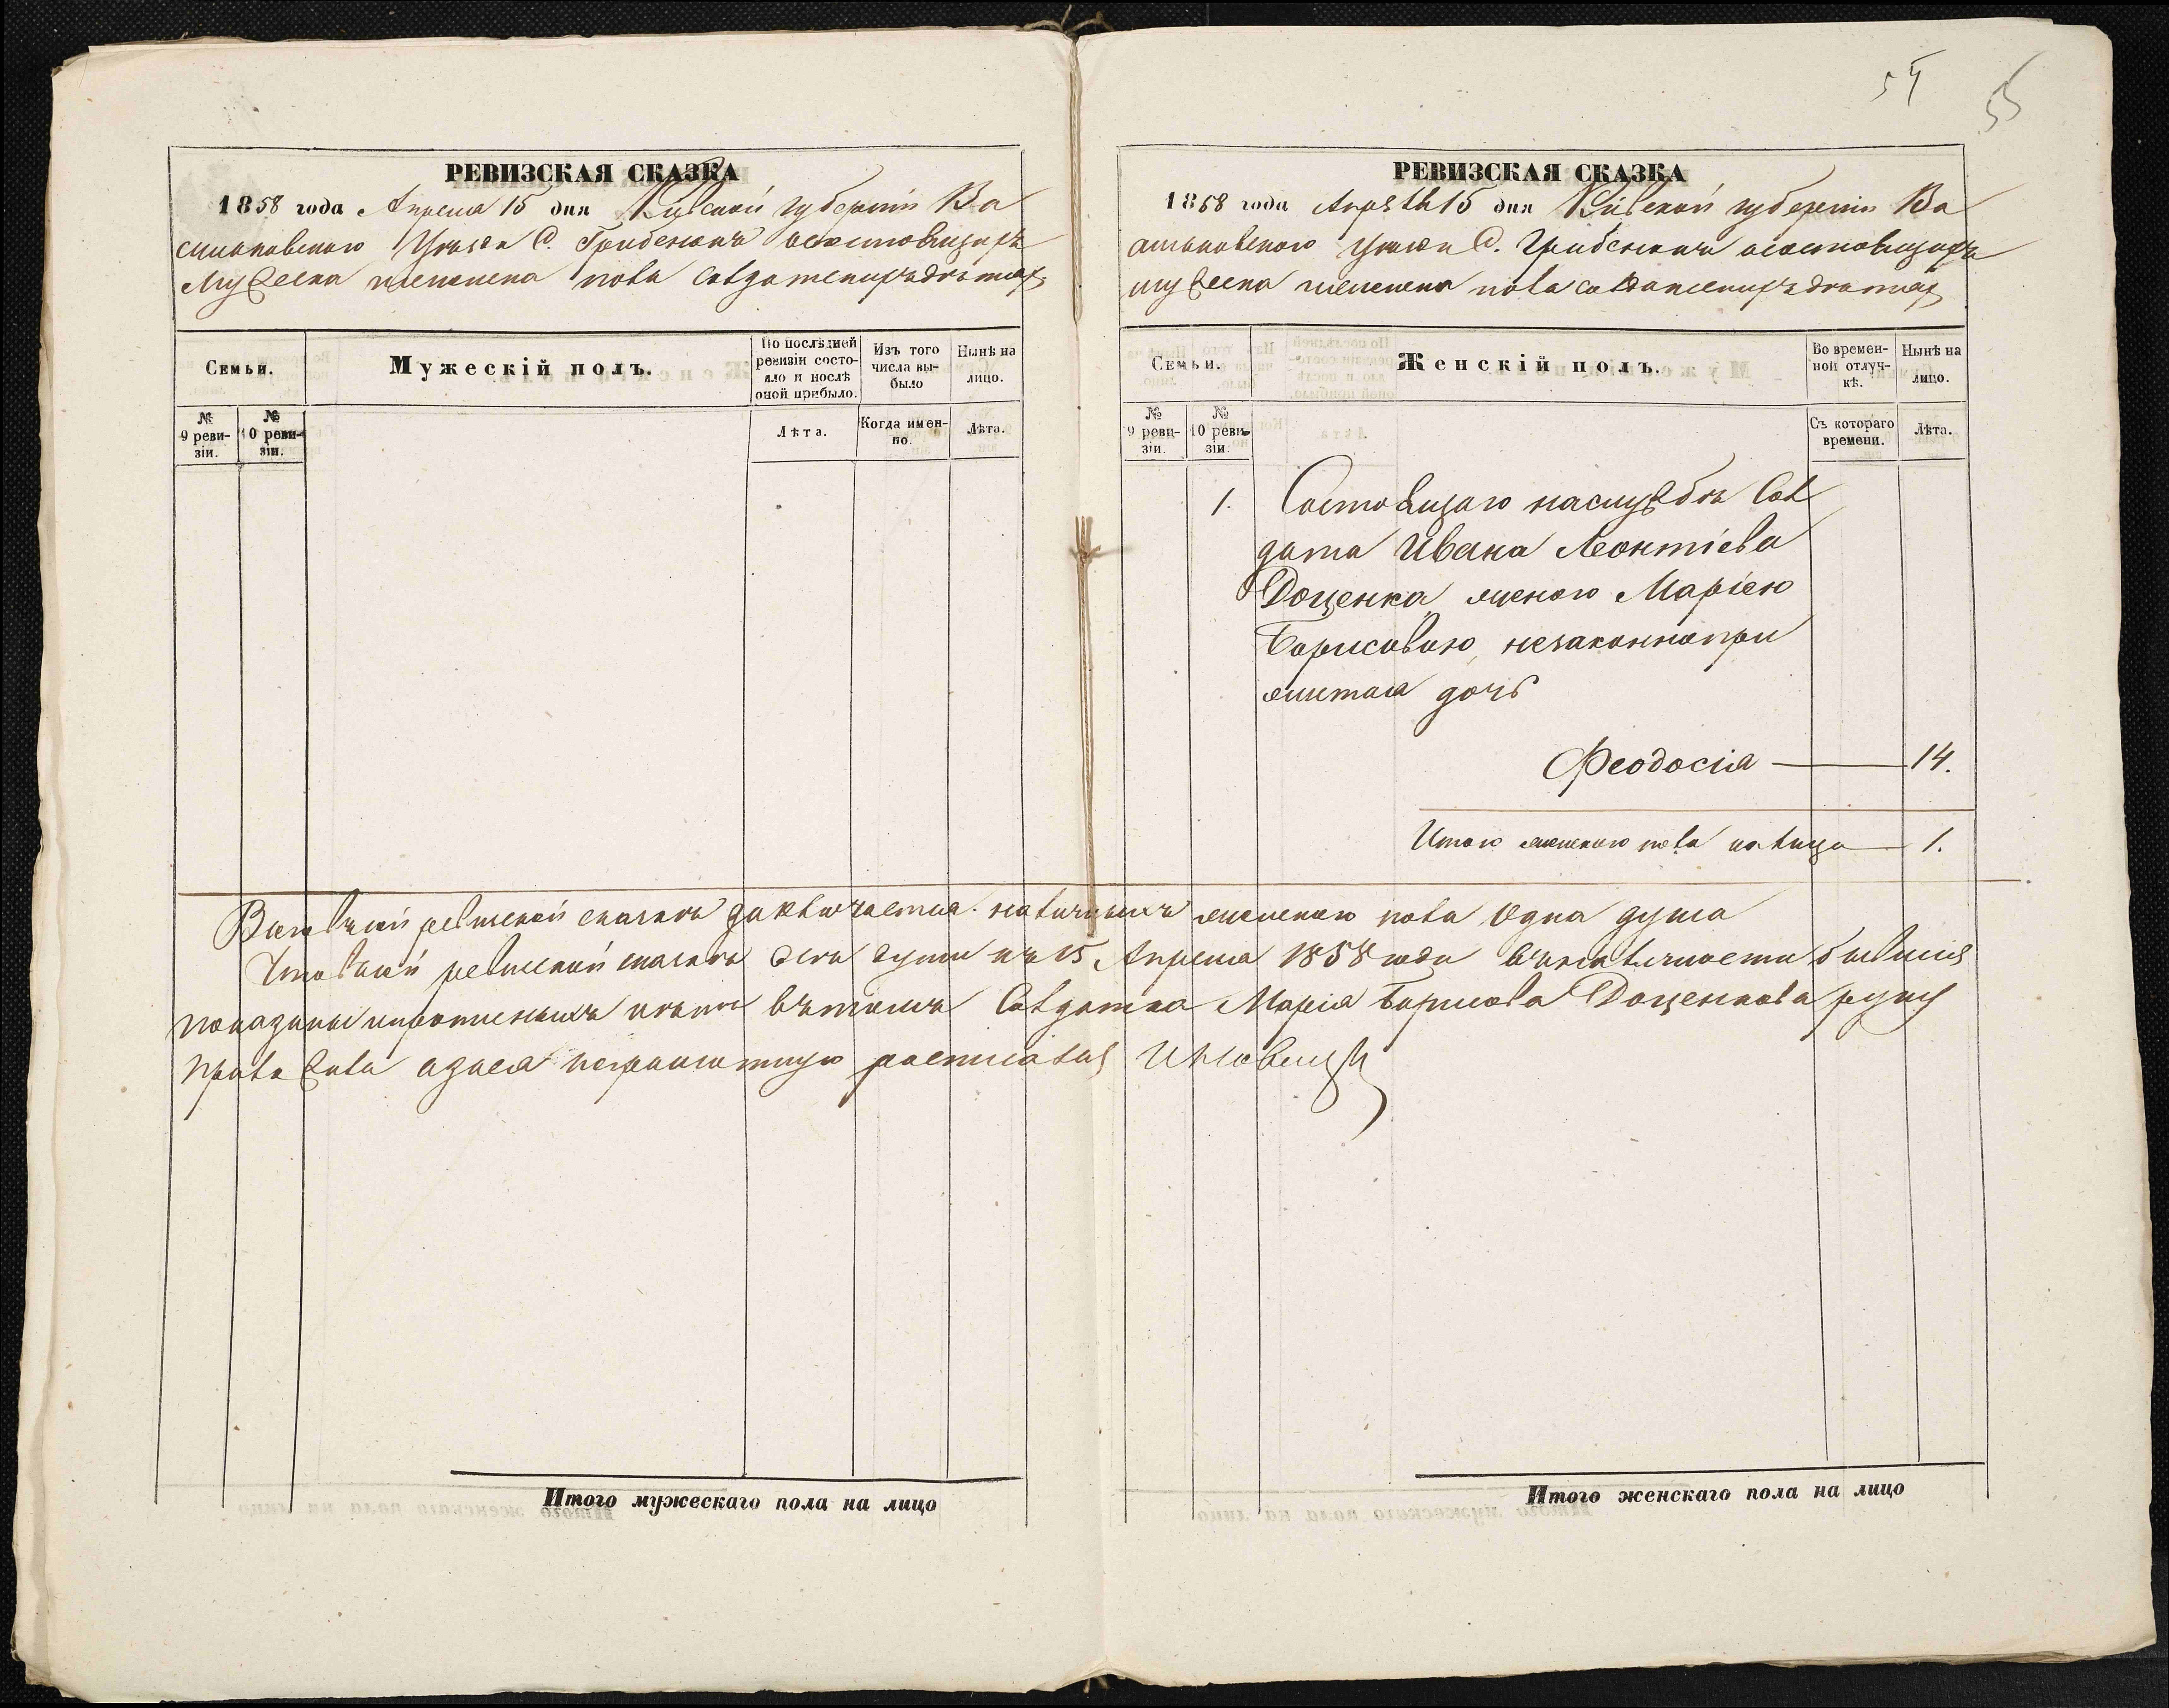 54 55
РЕВИЗСКАЯ СКАЗКА
1858 года Апреля 15 дня Кіевской губерніи Ва
сильковскаго Уѣзда С. Гребенокъ о состоящихъ
мужеска и женска пола Солдатскихъ дѣтяхъ
Семьи.
Мужескій полъ.
По послѣдней ревизіи состояло и послѣ оной прибыло.
Изъ того числа выбыло
Нынѣ на лицо.
№ 9 ревизіи.
№ 10 ревизіи.
Лѣта.
Когда именно.
Лѣта.
Итого мужескаго пола на лицо
РЕВИЗСКАЯ СКАЗКА
1858 года Апрѣля 15 дня Кіевской губерніи Ва
сильковского Уѣзда С. Гребенкахъ о состоящихъ
мужеска и женска пола солдатскихъ дѣтяхъ
Семьи.
Женскій полъ.
Во временной отлучкѣ.
Нынѣ на лицо.
№ 9 ревизіи.
№ 10 ревизіи.
Съ котораго времени.
Лѣта.
1. Состоящаго на службѣ Сол
дата Ивана Леонтіева
Доценка женою Маріею
Борисовою, незаконнопри
житая дочь
Феодосія 14.
Итого женского пола на лицо 1.
В сей ревизской сказкѣ заключается наличныхъ женского пола Одна душа
Что в сей ревизской сказкѣ всѣ души къ 15 Апреля 1858 года въ наличности бывшія
показаны и пропущенныхъ нѣтъ въ томъ Солдатка Марія Борисова Доценкова руку
прилагала а за нея неграмотную росписался
Итого женскаго пола на лицо